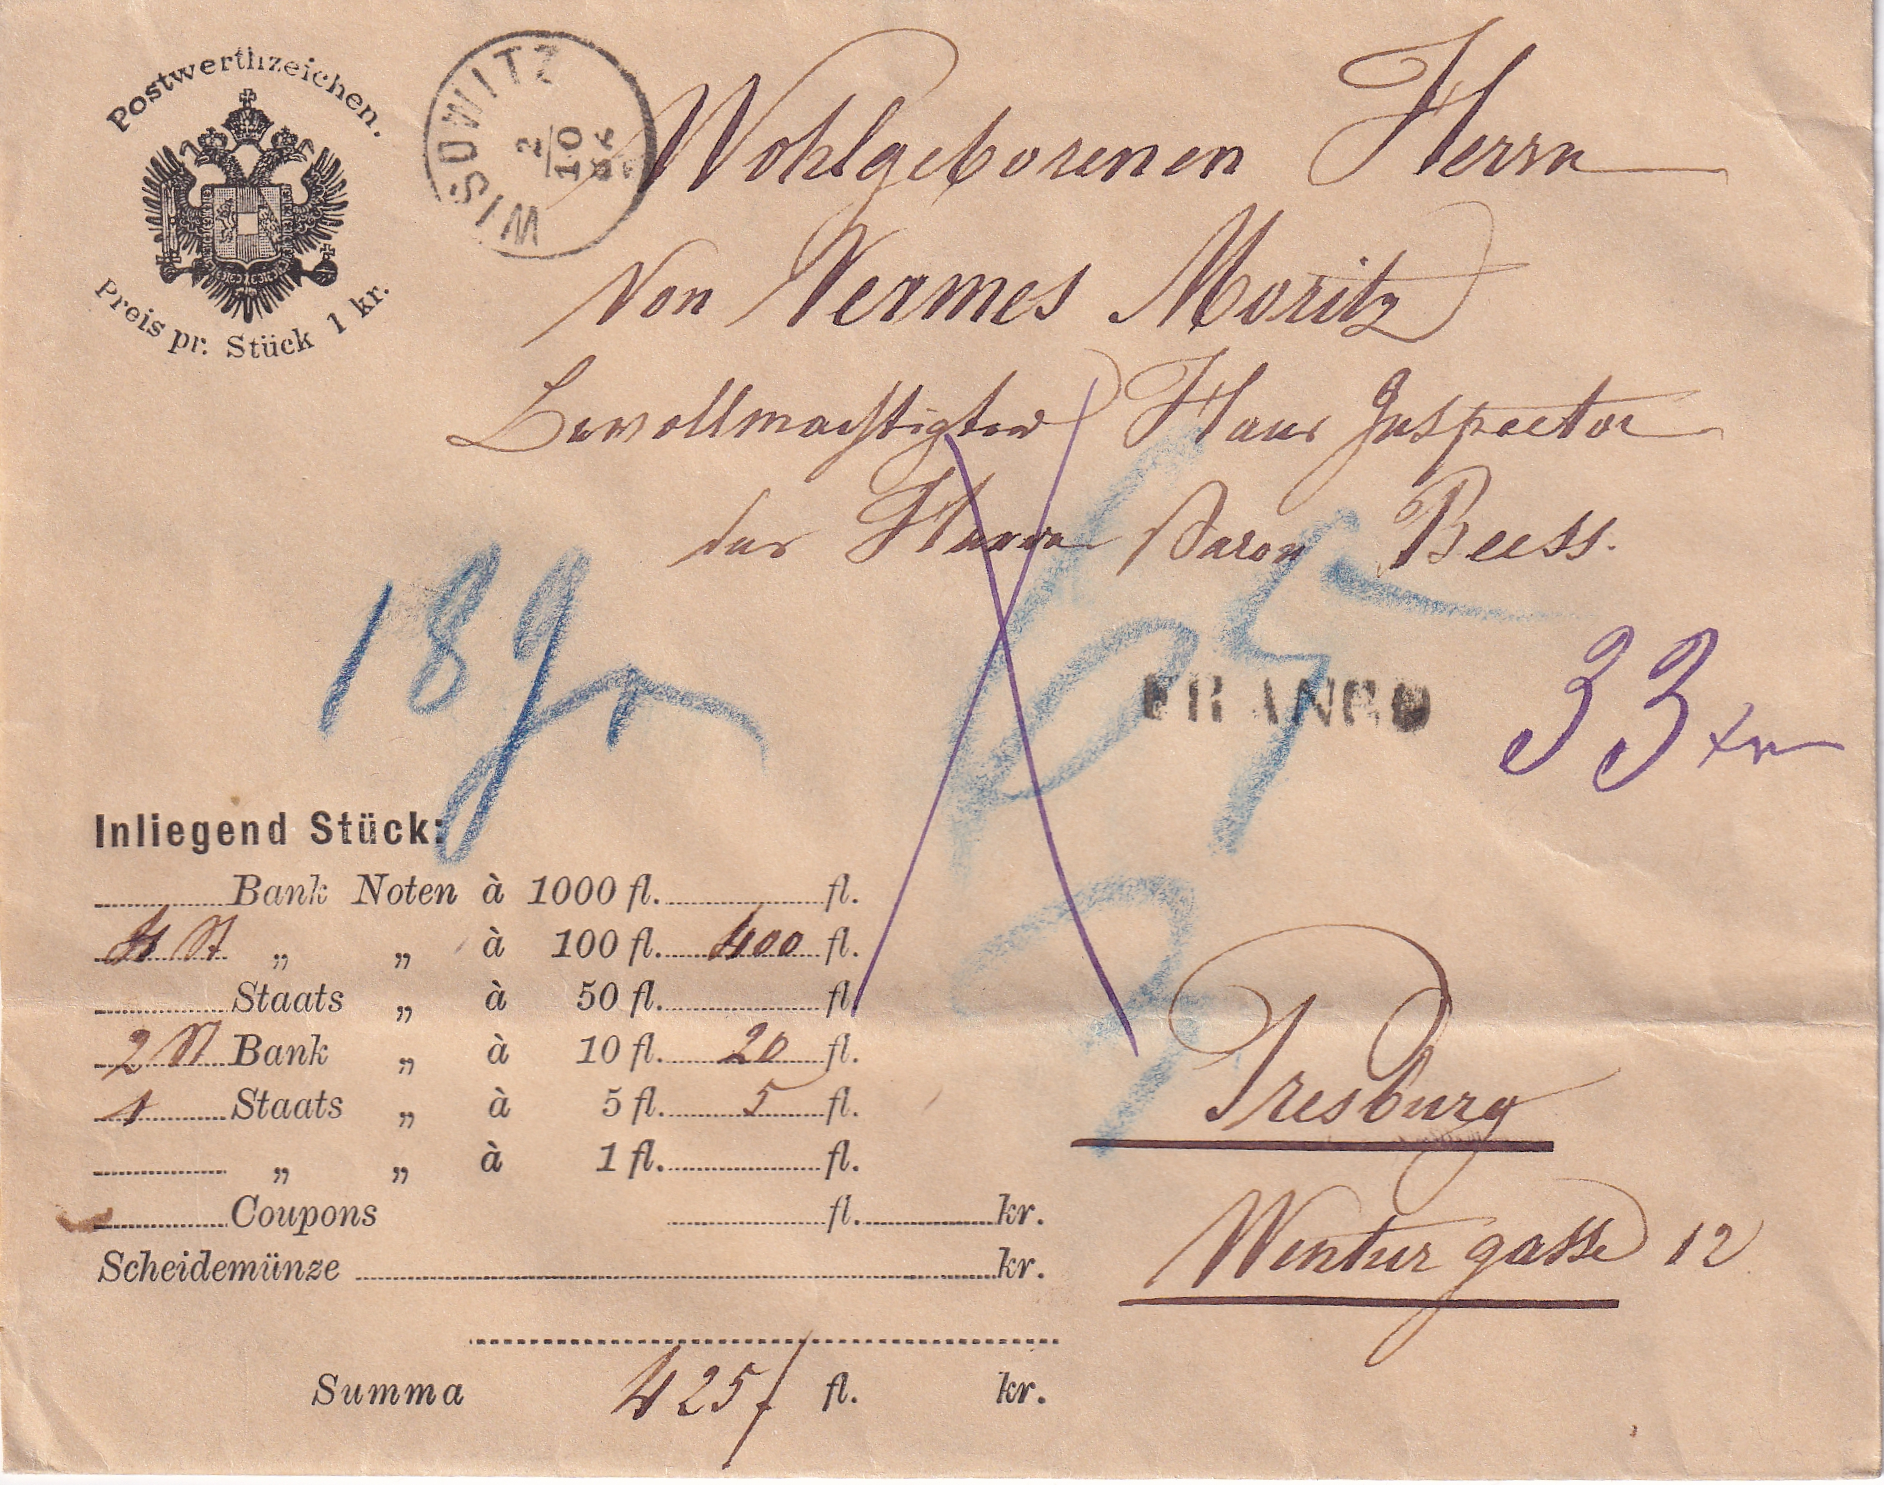 Postwerthzeichen.
Preis pr. Stück 1 kr.
WISOWITZ
2
10
84
Wohlgeborenen Herrn
Von Vermes Moritz
Bevollmachtigter Haus Inspector
des Herrn Baron Beess.
18 gr
65
FRANCO
33 xr
Inliegend Stück:
Bank Noten à 1000 fl. fl.
4 St „ „ à 100 fl. 400 fl.
Staats „ à 50 fl. fl.
2 St Bank „ à 10 fl. 20 fl.
1 Staats „ à 5 fl. 5 fl.
„ „ à 1 fl. fl.
Coupons fl. kr.
Scheidemünze kr.
Summa 425 / fl. kr.
Presburg
Wentur gasse 12